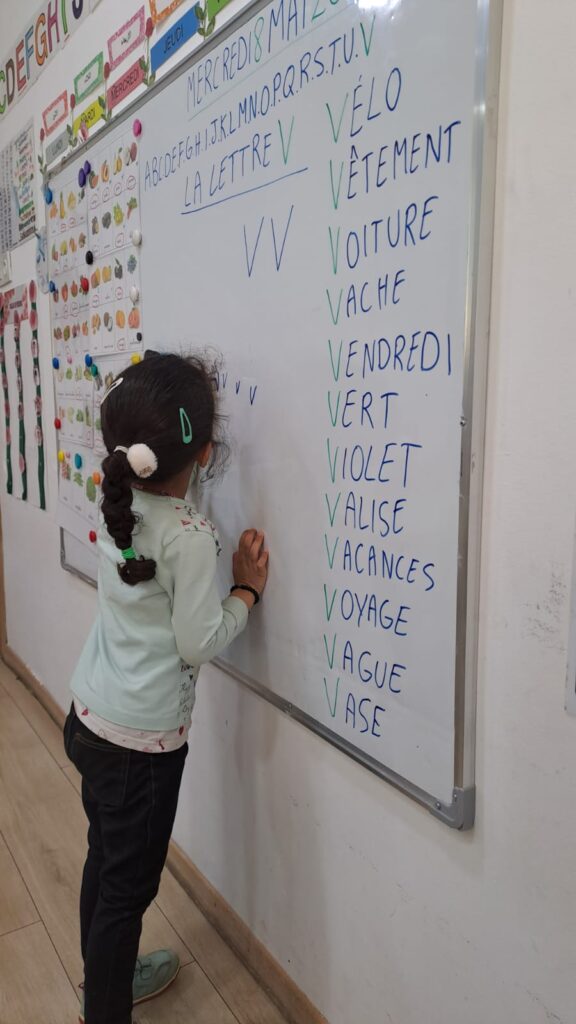 ABCDEFGHIJ
JEUDI
MERCREDI
MARDI
MERCREDI 8 MAI
ABCDEFGH.I.J.K.L.M.N.O.P.Q.R.S.T.U.V
LA LETTRE V
V V
v v v
VÉLO
VÊTEMENT
VOITURE
VACHE
VENDREDI
VERT
VIOLET
VALISE
VACANCES
VOYAGE
VAGUE
VASE